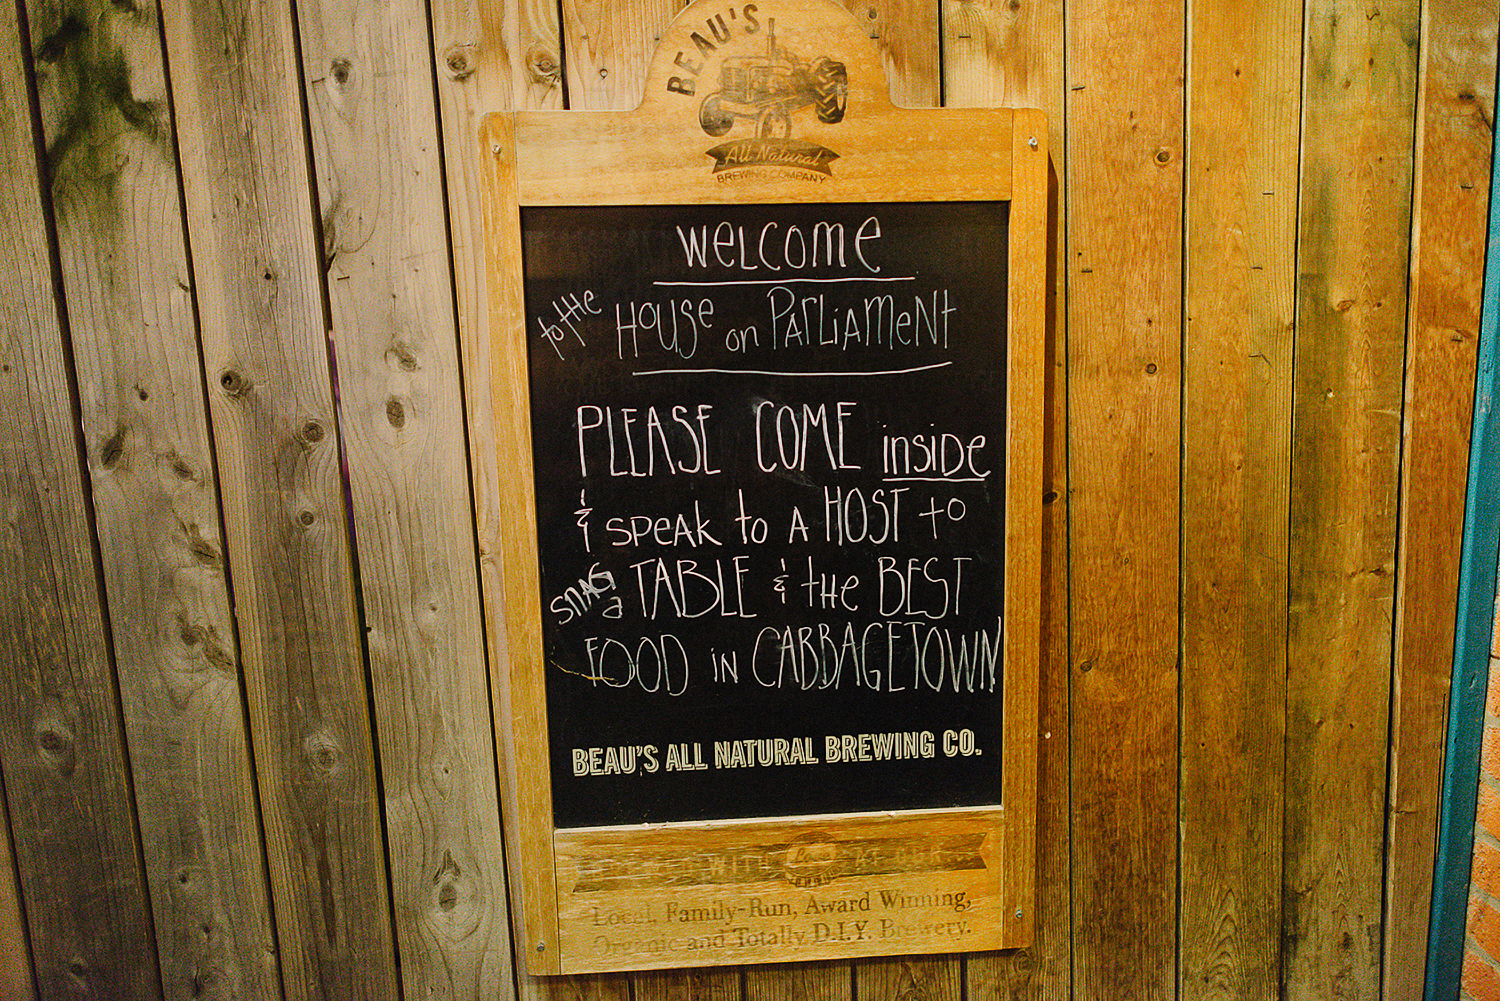 BEAU'S
All Natural
BREWING COMPANY
WELCOME
to the HOUSE on PARLIAMENT
PLEASE COME inside
& SPEAK to A HOST to
SNAG a TABLE & the BEST
FOOD IN CABBAGETOWN
BEAU'S ALL NATURAL BREWING CO.
WITH
Local, Family-Run, Award Winning,
Organic and Totally D.I.Y. Brewery.